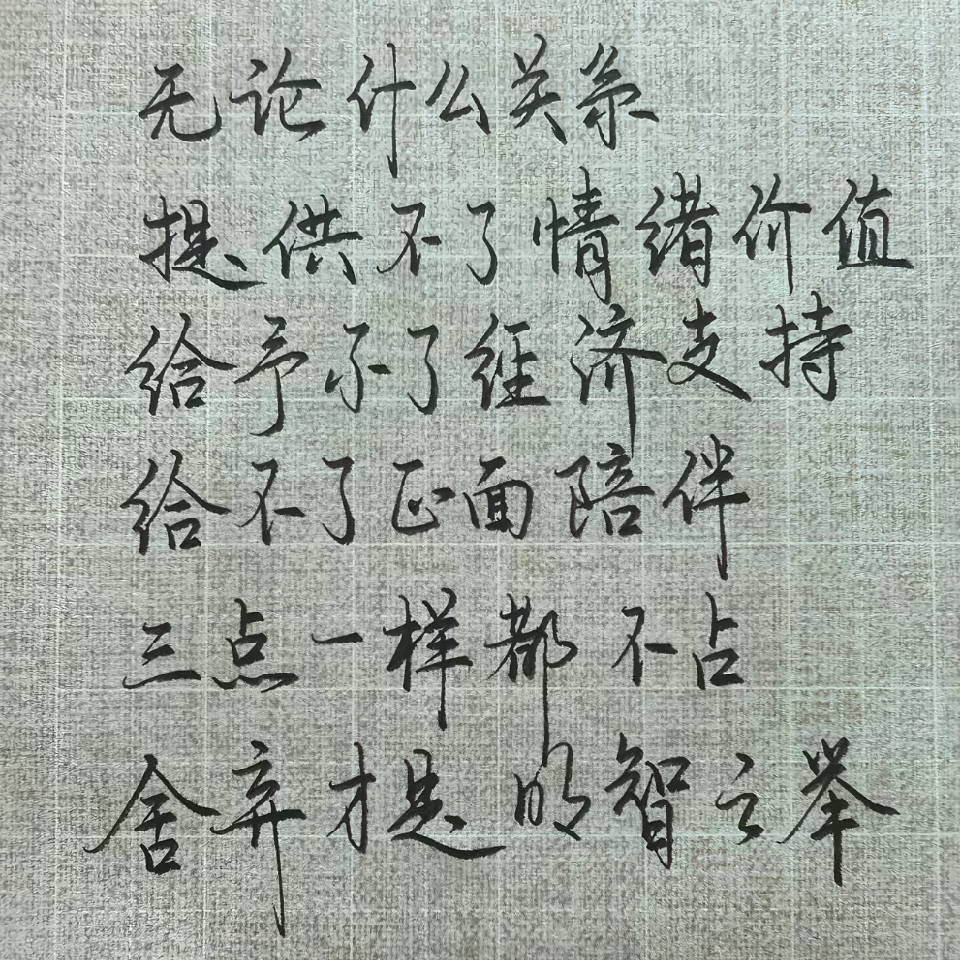 无论什么关系
提供不了情绪价值
给予不了经济支持
给不了正面陪伴
三点一样都不占
舍弃才是明智之举